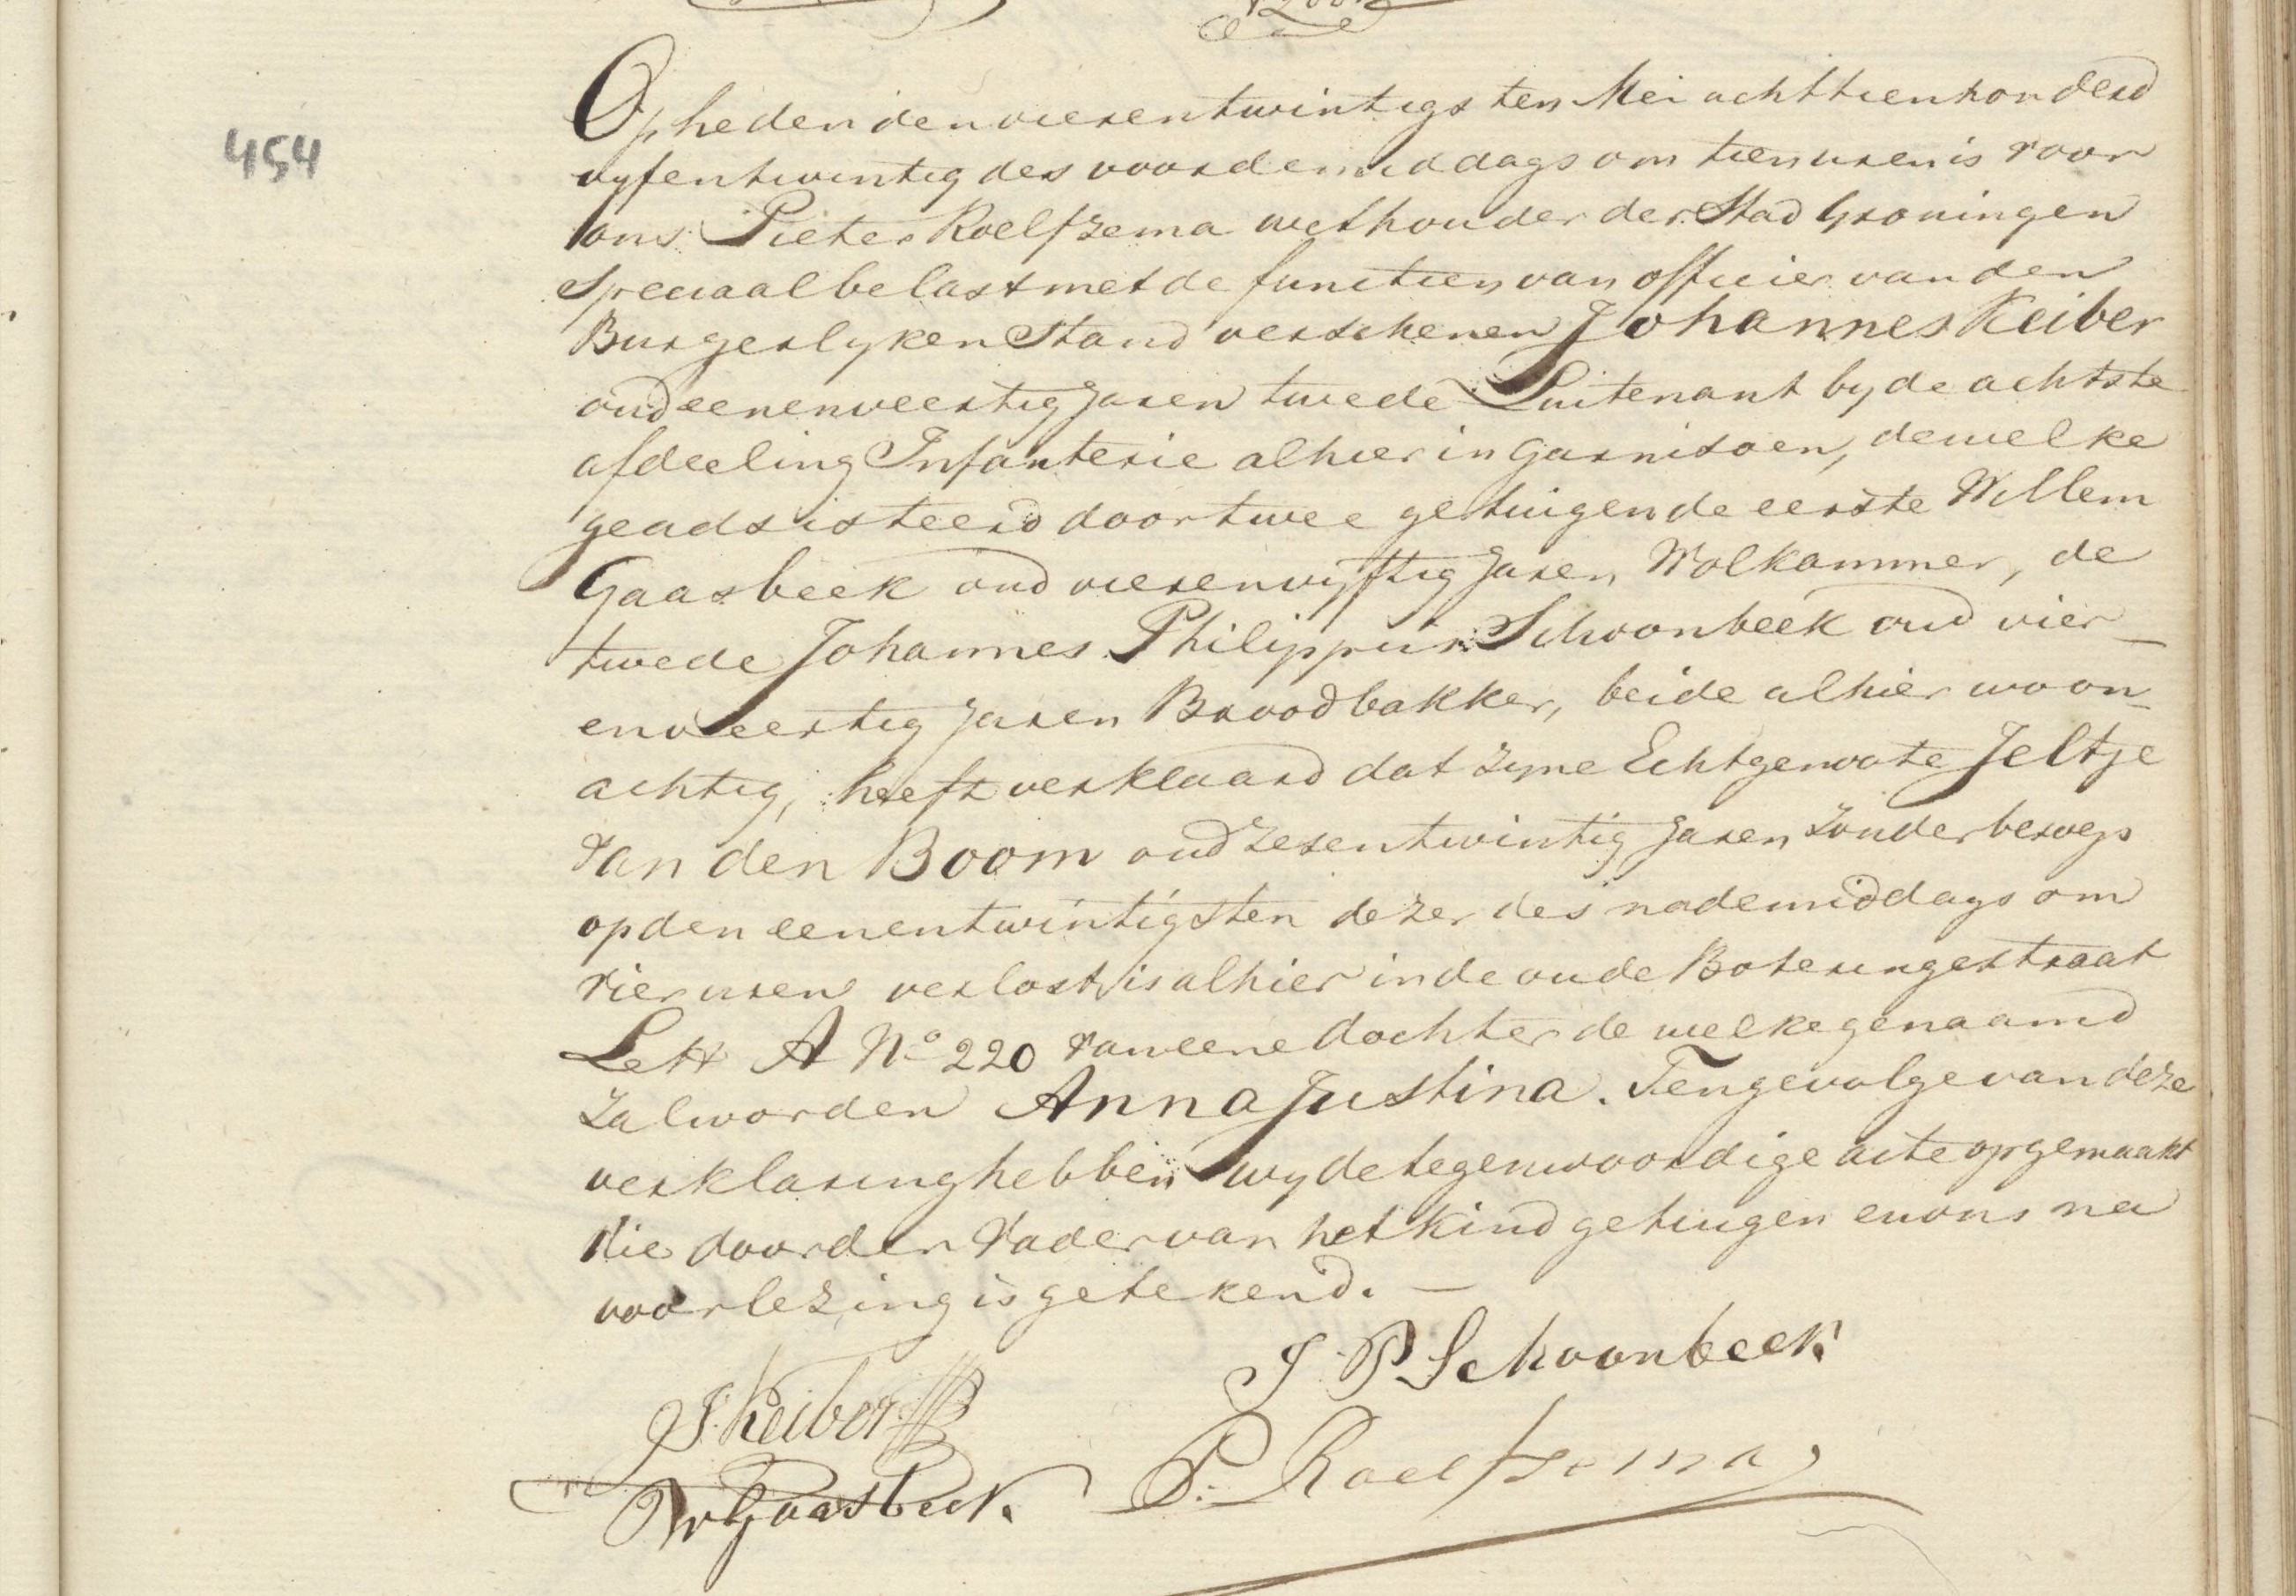 454
Op heden den vierentwintigsten Mei achttienhonderd
vyfentwintig des voordemiddags om tien uren is voor
ons Pieter Roelfzema wethouder der Stad Groningen
Speciaal belast met de functien van officier van den
Burgerlyken Stand verschenen Johannes Keiber
oud eenenveertig Jaren twede Luitenant by de achtste
afdeeling Infanterie alhier in Garnisoen, dewelke
geadsisteerd door twee getuigen de eerste Willem
Gaasbeek oud vierenvyftig Jaren Wolkammer, de
twede Johannes Philippus Schoonbeek oud vier-
enveertig Jaren Broodbakker, beide alhier woon-
achtig, heeft verklaard dat zyne Echtgenoote Jeltje
van den Boom oud zesentwintig Jaren zonder beroep
op den eenentwintigsten dezer des nademiddags om
vier uren verlost is alhier in de oude Boteringestraat
Lett A No 220 van eene dochter de welke genaamd
zal worden Anna Justina. Tengevolge van deze
verklaring hebben wy de tegenwoordige acte opgemaakt
die door den Vader van het Kind getuigen en ons na
voorlezing is getekend. —
J P Schoonbeek
J. Keiber
P. Roelfzema
W Gaasbeek.